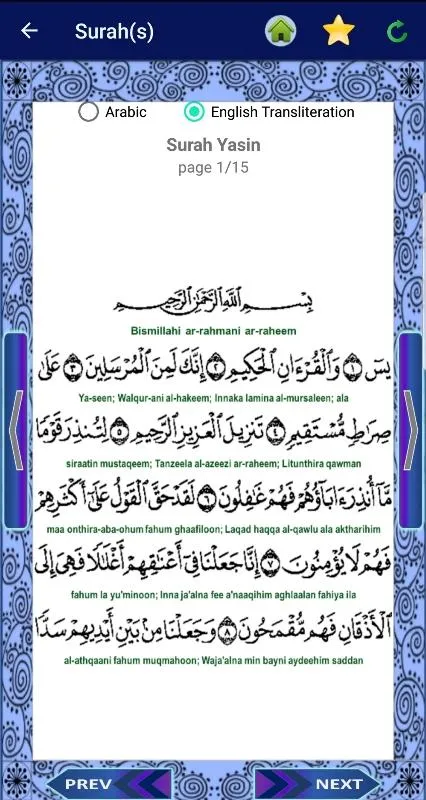 Surah(s)
Arabic
English Transliteration
Surah Yasin
page 1/15
بِسْمِ اللَّهِ الرَّحْمَٰنِ الرَّحِيمِ
Bismillahi ar-rahmani ar-raheem
يسٓ ١ وَالْقُرْءَانِ الْحَكِيمِ ٢ إِنَّكَ لَمِنَ الْمُرْسَلِينَ ٣ عَلَىٰ
Ya-seen; Walqur-ani al-hakeem; Innaka lamina al-mursaleen; ala
صِرَاطٍ مُّسْتَقِيمٍ ٤ تَنزِيلَ الْعَزِيزِ الرَّحِيمِ ٥ لِتُنذِرَ قَوْمًا
siraatin mustaqeem; Tanzeela al-azeezi ar-raheem; Litunthira qawman
مَّآ أُنذِرَ ءَابَآؤُهُمْ فَهُمْ غَٰفِلُونَ ٦ لَقَدْ حَقَّ الْقَوْلُ عَلَىٰٓ أَكْثَرِهِمْ
maa onthira-aba-ohum fahum ghaafiloon; Laqad haqqa al-qawlu ala aktharihim
فَهُمْ لَا يُؤْمِنُونَ ٧ إِنَّا جَعَلْنَا فِىٓ أَعْنَٰقِهِمْ أَغْلَٰلًا فَهِىَ إِلَى
fahum la yu'minoon; Inna ja'alna fee a'naaqihim aghlaalan fahiya ila
الْأَذْقَانِ فَهُم مُّقْمَحُونَ ٨ وَجَعَلْنَا مِنۢ بَيْنِ أَيْدِيهِمْ سَدًّا
al-athqaani fahum muqmahoon; Waja'alna min bayni aydeehim saddan
PREV
NEXT